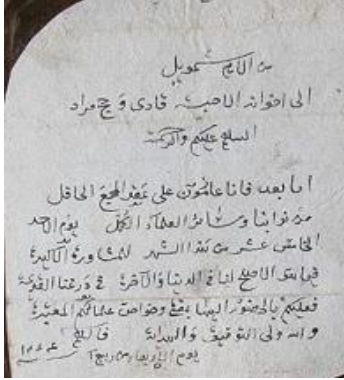 من الامام شمويل
الى اخوانه الاحبة قادى وحج مراد
السلام عليكم والرحمة
اما بعد فانا عازمون على عقد المجمع الحافل
من نوابنا وسائر العلماء الكمل يوم الاحد
الخامس عشر من هذا الشهر للمشاورة الاكيدة
فيما هو الاصلح لنا في الدنيا والآخرة في
فعليكم بالحضور الينا مع علمائكم المعتبرة
والله ولى التوفيق والهداية
يوم الاربعاء من ربيع